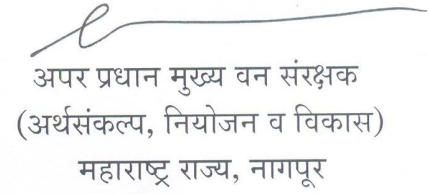 अपर प्रधान मुख्य वन संरक्षक
(अर्थसंकल्प, नियोजन व विकास)
महाराष्ट्र राज्य, नागपूर